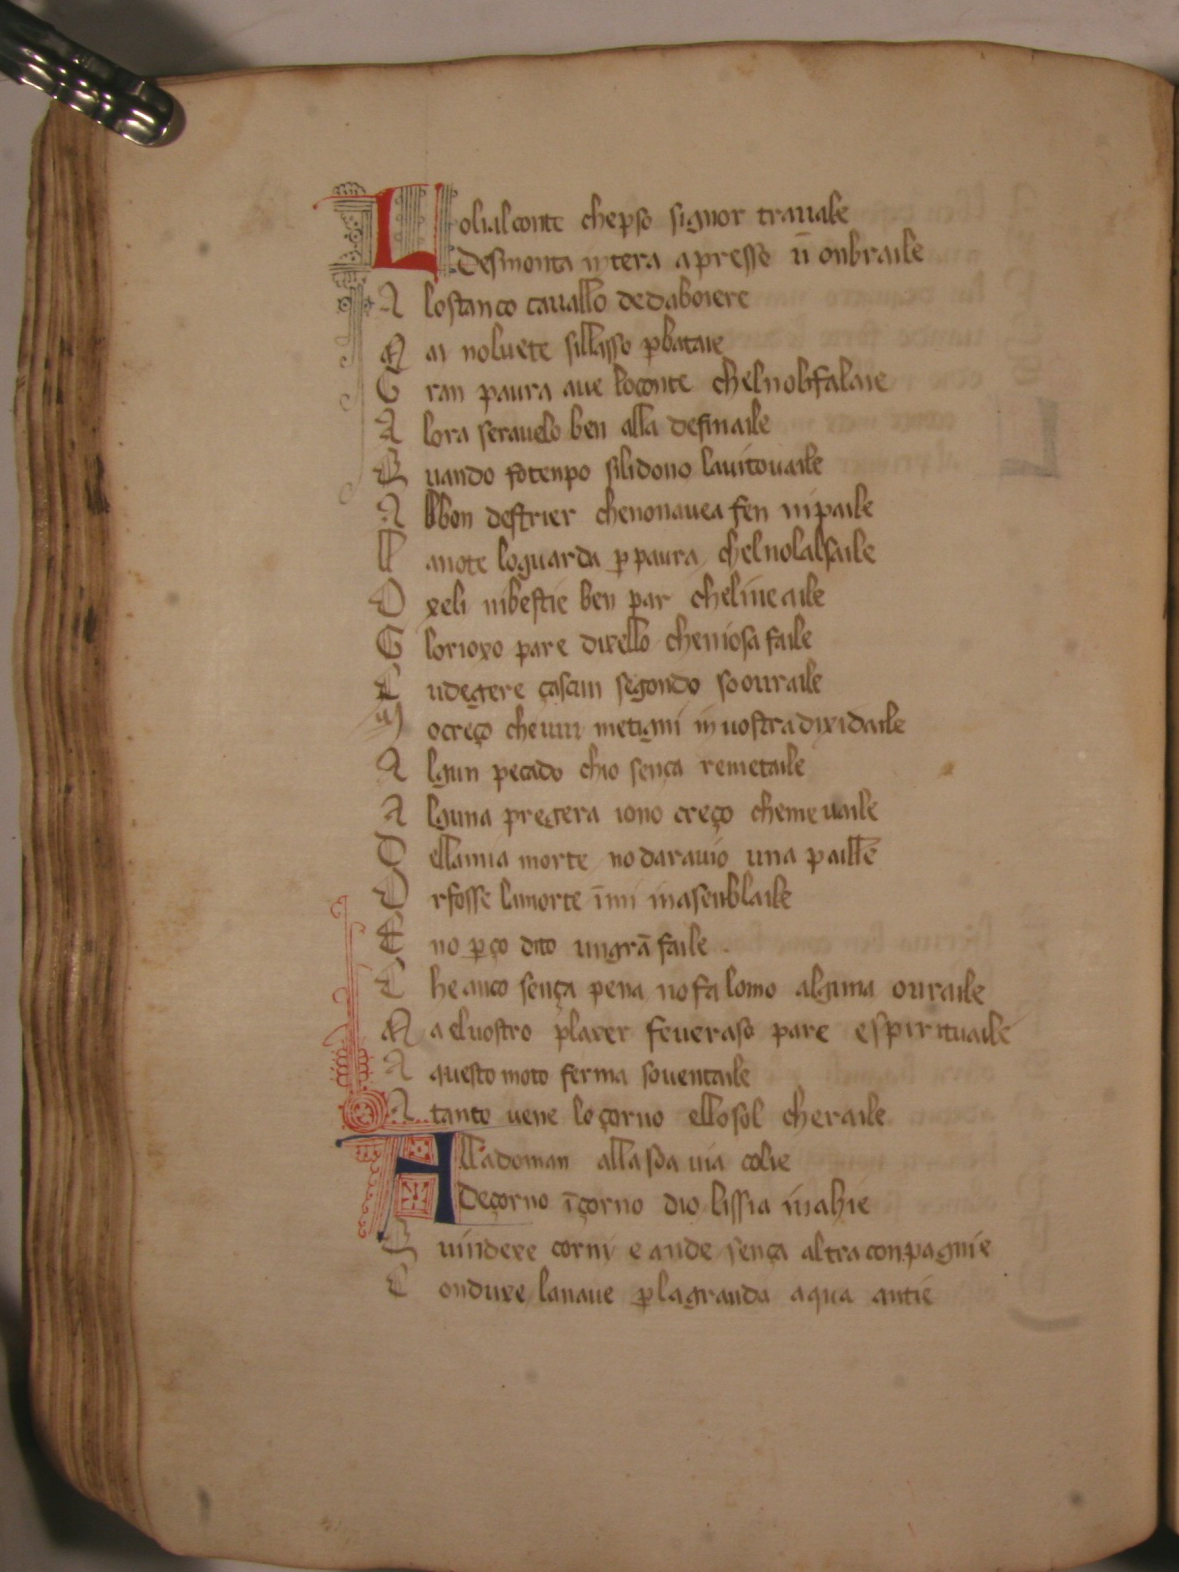 L olialconte chepso signor trauale
Desmonta intera apresso ū onbraile
A lostanco cauallo dedaboiere
M ai noluete sillisso ꝑbataie
G ran paura aue loconte chelnolifalaie
A lora serauelo ben alla definaile
Q uando fotenpo silidono lauitouaile
A lbon destrier chenonauea fen nipaile
L anote loguarda ꝑpaura chelnolalsaile
O xeli nibestie ben par cheline aile
G lorioxo pare dixello cheniosa faile
C udegere çascun segondo soouraile
M ocreço cheuui metigni in uostra dixidaile
A lgun pecado chio sença remetaile
A lguna pregera iono creço cheme uaile
D ellamia morte no daraui o una paille
O rfosse lamorte īmi inasenblaile
E no ꝑço dito ungrā faile
C he anco sença pena nofa lomo alguna ouraile
M a eluostro plaxer feueraso pare espirituaile
A questo moto ferma souentaile
A tanto uene loçorno ellosol cheraile
A lladoman allasoa uia colie
Deçorno īçorno dio lissia in ahie
Q uindexe corni e ande sença altra conpagnie
C onduxe lanaue ꝑlagranda aqua antie